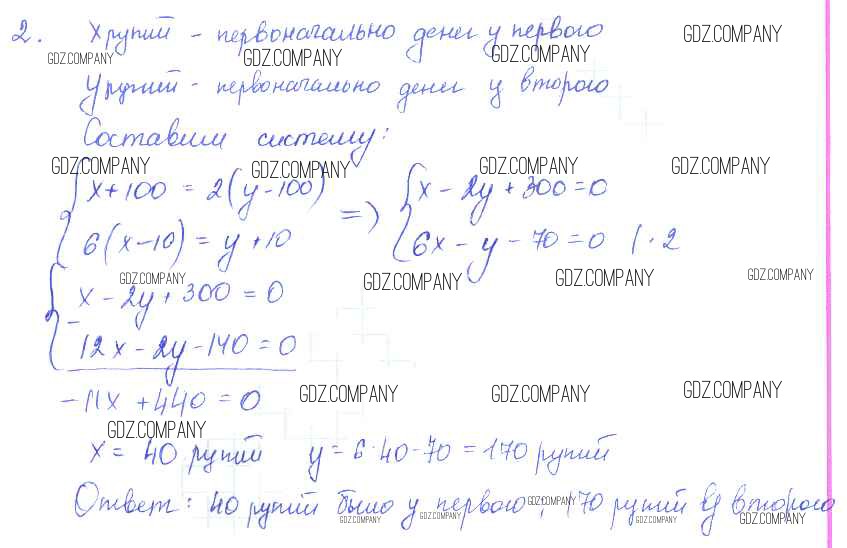 2. X рупий - первоначально денег у первого
GDZ.COMPANY GDZ.COMPANY GDZ.COMPANY GDZ.COMPANY
У рупий - первоначально денег у второго
Составим систему:
GDZ.COMPANY GDZ.COMPANY GDZ.COMPANY GDZ.COMPANY
{ x + 100 = 2(y - 100) => { x - 2y + 300 = 0
6(x - 10) = y + 10 6x - y - 70 = 0 | · 2
GDZ.COMPANY GDZ.COMPANY GDZ.COMPANY GDZ.COMPANY
{ x - 2y + 300 = 0
- 12x - 2y - 140 = 0
-11x + 440 = 0
GDZ.COMPANY GDZ.COMPANY GDZ.COMPANY
GDZ.COMPANY
x = 40 рупий y = 6·40 - 70 = 170 рупий
Ответ: 40 рупий было у первого, 170 рупий у второго
GDZ.COMPANY
GDZ.COMPANY GDZ.COMPANY GDZ.COMPANY GDZ.COMPANY